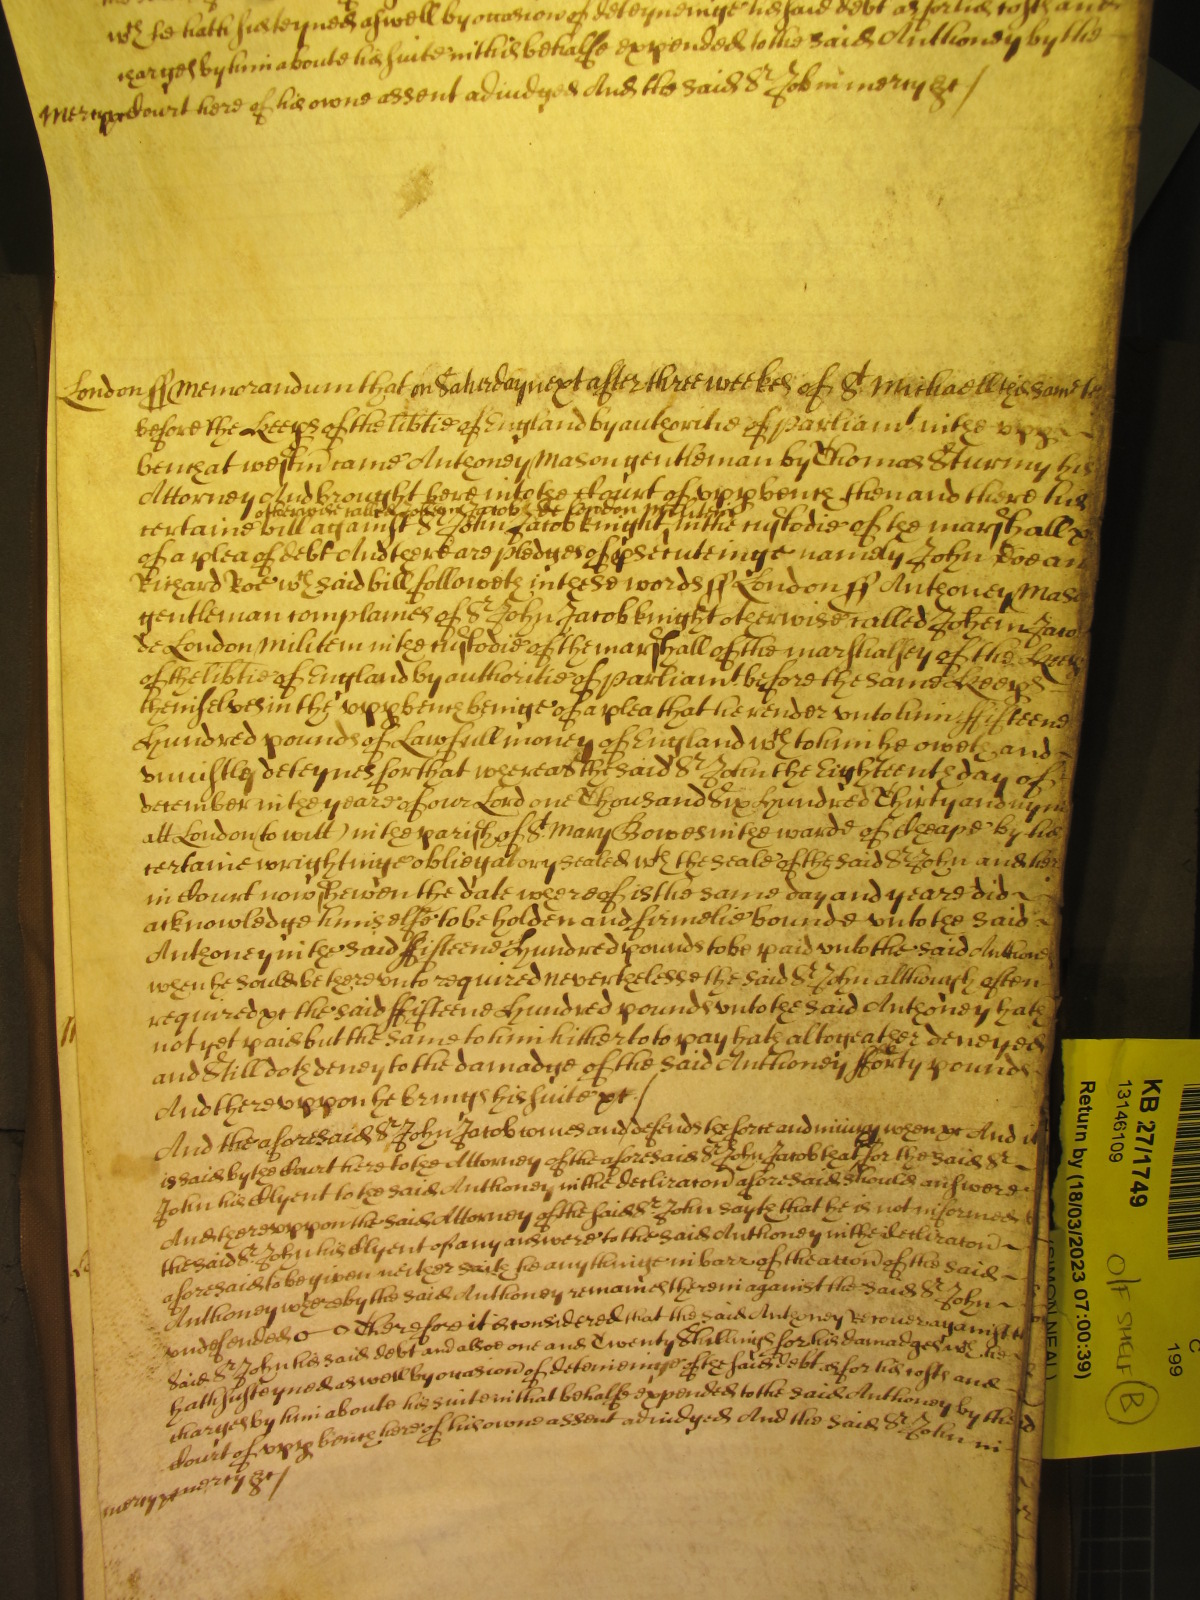 wch he hath susteyned aswell by occasion of deteyneinge his said debt as for his costs and
charges by him aboute his suite in this behalfe expended to the said Anthoney by the
Court here of his owne assent adiudged And the said Sr John in mercy &c /
Mercy
London ss Memorandum that on Saturday next after three weekes of St Michaell this same
before the Keeps of the libtie of England by authoritie of Parliamt in the upp
bench at Westm came Anthoney Mason gentleman by Thomas Sturmy his
Attorney And brought here into the Court of upp bench then and there his
otherwise called Johem Jacob de London Militem
certaine bill against Sr John Jacob knight in the custodie of the marshall &c
of a plea of debt And there are pledges of psecuteinge namely John Doe an
Richard Roe wch said bill followeth in these words ss London ss Anthoney Maso
gentleman complaines of Sr John Jacob knight otherwise called Johem Jaco
de London Militem in the custodie of the marshall of the marshalsey of the Keeps
of the libtie of England by authoritie of Parliamt before the same Keeps
themselves in the upp bench beinge of a plea that he render unto him ffifteene
Hundred pounds of Lawfull money of England wch to him he oweth and
uniustly deteynes for that whereas the said Sr John the Eighteenth day of
December in the yeare of our Lord one Thousand Six Hundred Thirty and nyne
att London (to witt) in the parish of St Mary Bowes in the warde of Cheape by his
certaine wrightinge obligatory sealed wth the seale of the said Sr John and here
in Court now shewen the date whereof is the same day and yeare did
acknowledge himselfe to be holden and firmelie bounde unto the said
Anthoney in the said ffifteene Hundred pounds to be paid unto the said Anthoney
when he sould be thereunto required nevertheless the said Sr John although often
required &c the said ffifteene Hundred pounds unto the said Anthoney hath
not yet paid but the same to him hitherto to pay hath altogeather deneyed
and Still doth deney to the damadge of the said Anthoney fforty pounds
And thereuppon he brings his suite &c /
And the aforesaid Sr John Jacob comes and defends the force and iniury when &c And it
is said by the Court here to the Attorney of the aforesaid Sr John Jacob that for the said Sr
John his Clyent to the said Anthoney in the declaracon aforesaid should answere
And thereuppon the said Attorney of the said Sr John sayth that he is not informed
the said Sr John his Clyent of any answere to the said Anthoney in the declaracon
aforesaid to be given neither saith he any thinge in barr of the accon of the said
Anthoney whereby the said Anthoney remaines therein against the said Sr John
undefended Therefore it is considered that the said Anthoney Recover against the
said Sr John his said debt and alsoe one and Twenty Shillings for his damadges wch he
hath susteyned as well by occasion of deteineinge of the said debt as for his costs and
charges by him aboute his suite in that behalfe expended to the said Anthoney by the
Court of upp bench here of his owne assent adiudged And the said Sr John in
mercy &c /
mercy
KB 27/1749
13146109
Return by (18/03/2023 07:00:39)
SIMON NEAL
199
OFF SHELF B